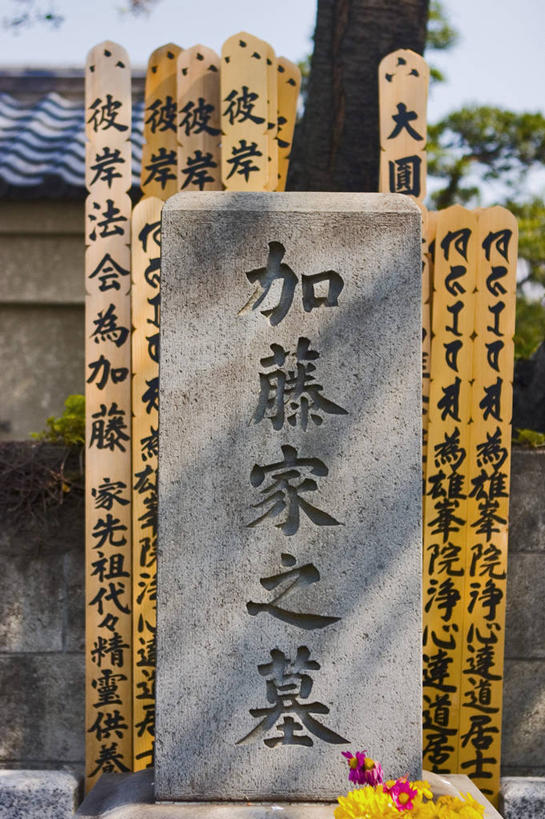 加藤家之墓
彼岸法会為加藤家先祖代々精霊供養
彼岸
彼岸
彼岸
大圓
為雄峯院浄心達道居
為雄峯院浄心達道居
為雄峯院浄心達道居士